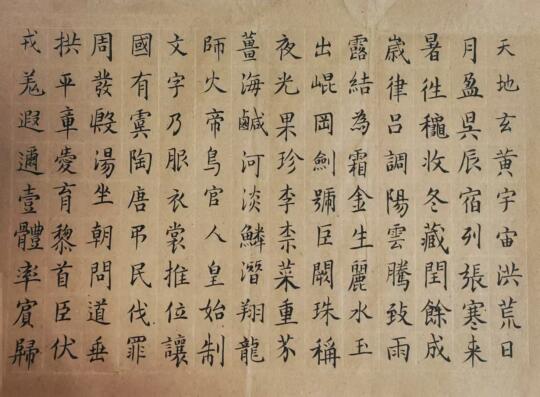 天地玄黃宇宙洪荒日
月盈昃辰宿列張寒来
暑徃穐收冬藏閏餘成
嵗律吕調陽雲騰致雨
露結為霜金生麗水玉
出崐岡劍號巨闕珠稱
夜光果珍李柰菜重芥
薑海鹹河淡鱗潛翔龍
師火帝鳥官人皇始制
文字乃服衣裳推位讓
國有虞陶唐弔民伐罪
周發殷湯坐朝問道垂
拱平章愛育黎首臣伏
戎羌遐邇壹體率賓歸